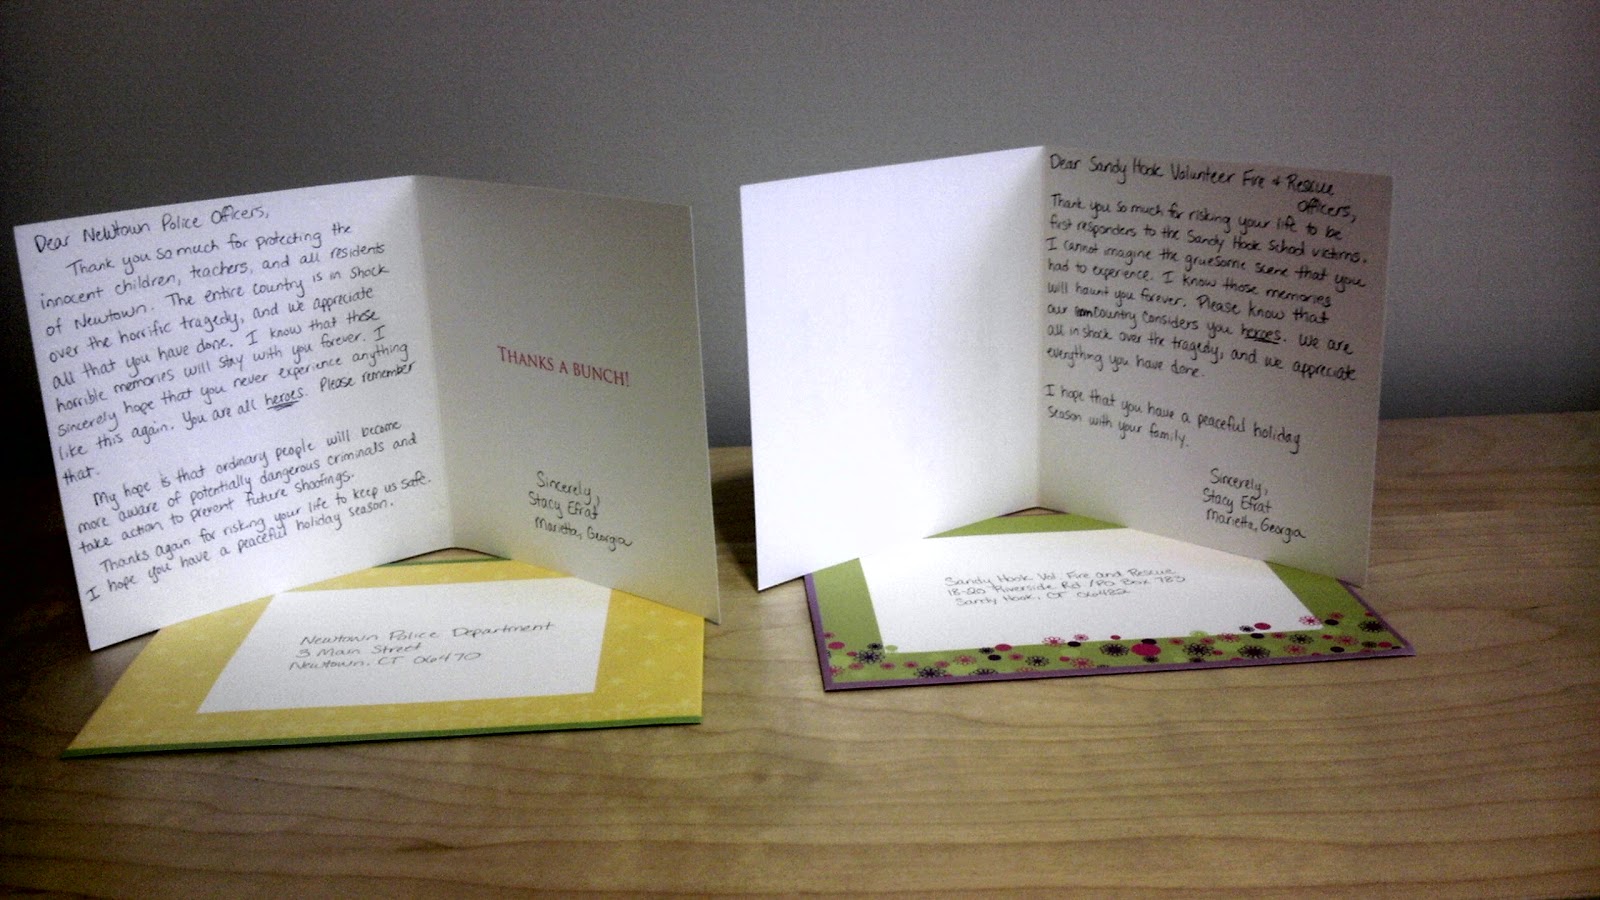 Dear Newtown Police Officers,
Thank you so much for protecting the
innocent children, teachers, and all residents
of Newtown. The entire country is in shock
over the horrific tragedy, and we appreciate
all that you have done. I know that these
horrible memories will stay with you forever. I
sincerely hope that you never experience anything
like this again. You are all heroes. Please remember
that.
My hope is that ordinary people will become
more aware of potentially dangerous criminals and
take action to prevent future shootings.
Thanks again for risking your life to keep us safe.
I hope you have a peaceful holiday season.
THANKS A BUNCH!
Sincerely,
Stacy Efrat
Marietta, Georgia
Newtown Police Department
3 Main Street
Newtown, CT 06470
Dear Sandy Hook Volunteer Fire & Rescue
Officers,
Thank you so much for risking your life to be
first responders to the Sandy Hook School victims.
I cannot imagine the gruesome scene that you
had to experience. I know those memories
will haunt you forever. Please know that
our country considers you heroes. We are
all in shock over the tragedy, and we appreciate
everything you have done.
I hope that you have a peaceful holiday
season with your family.
Sincerely,
Stacy Efrat
Marietta, Georgia
Sandy Hook Vol. Fire and Rescue
18-20 Riverside Rd / PO Box 783
Sandy Hook, CT 06482